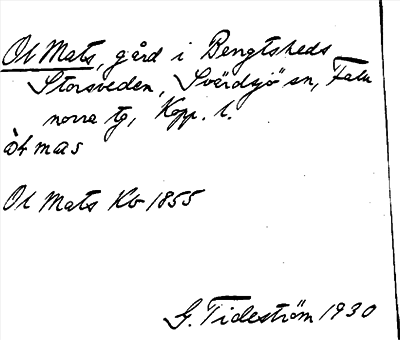 Ol Mats, gård i Bengtsheds
Storsveden, Svärdsjö sn, Falu
norra tg, Kopp. l.
mas
Ol Mats Kb 1855
G. Tideström 1930